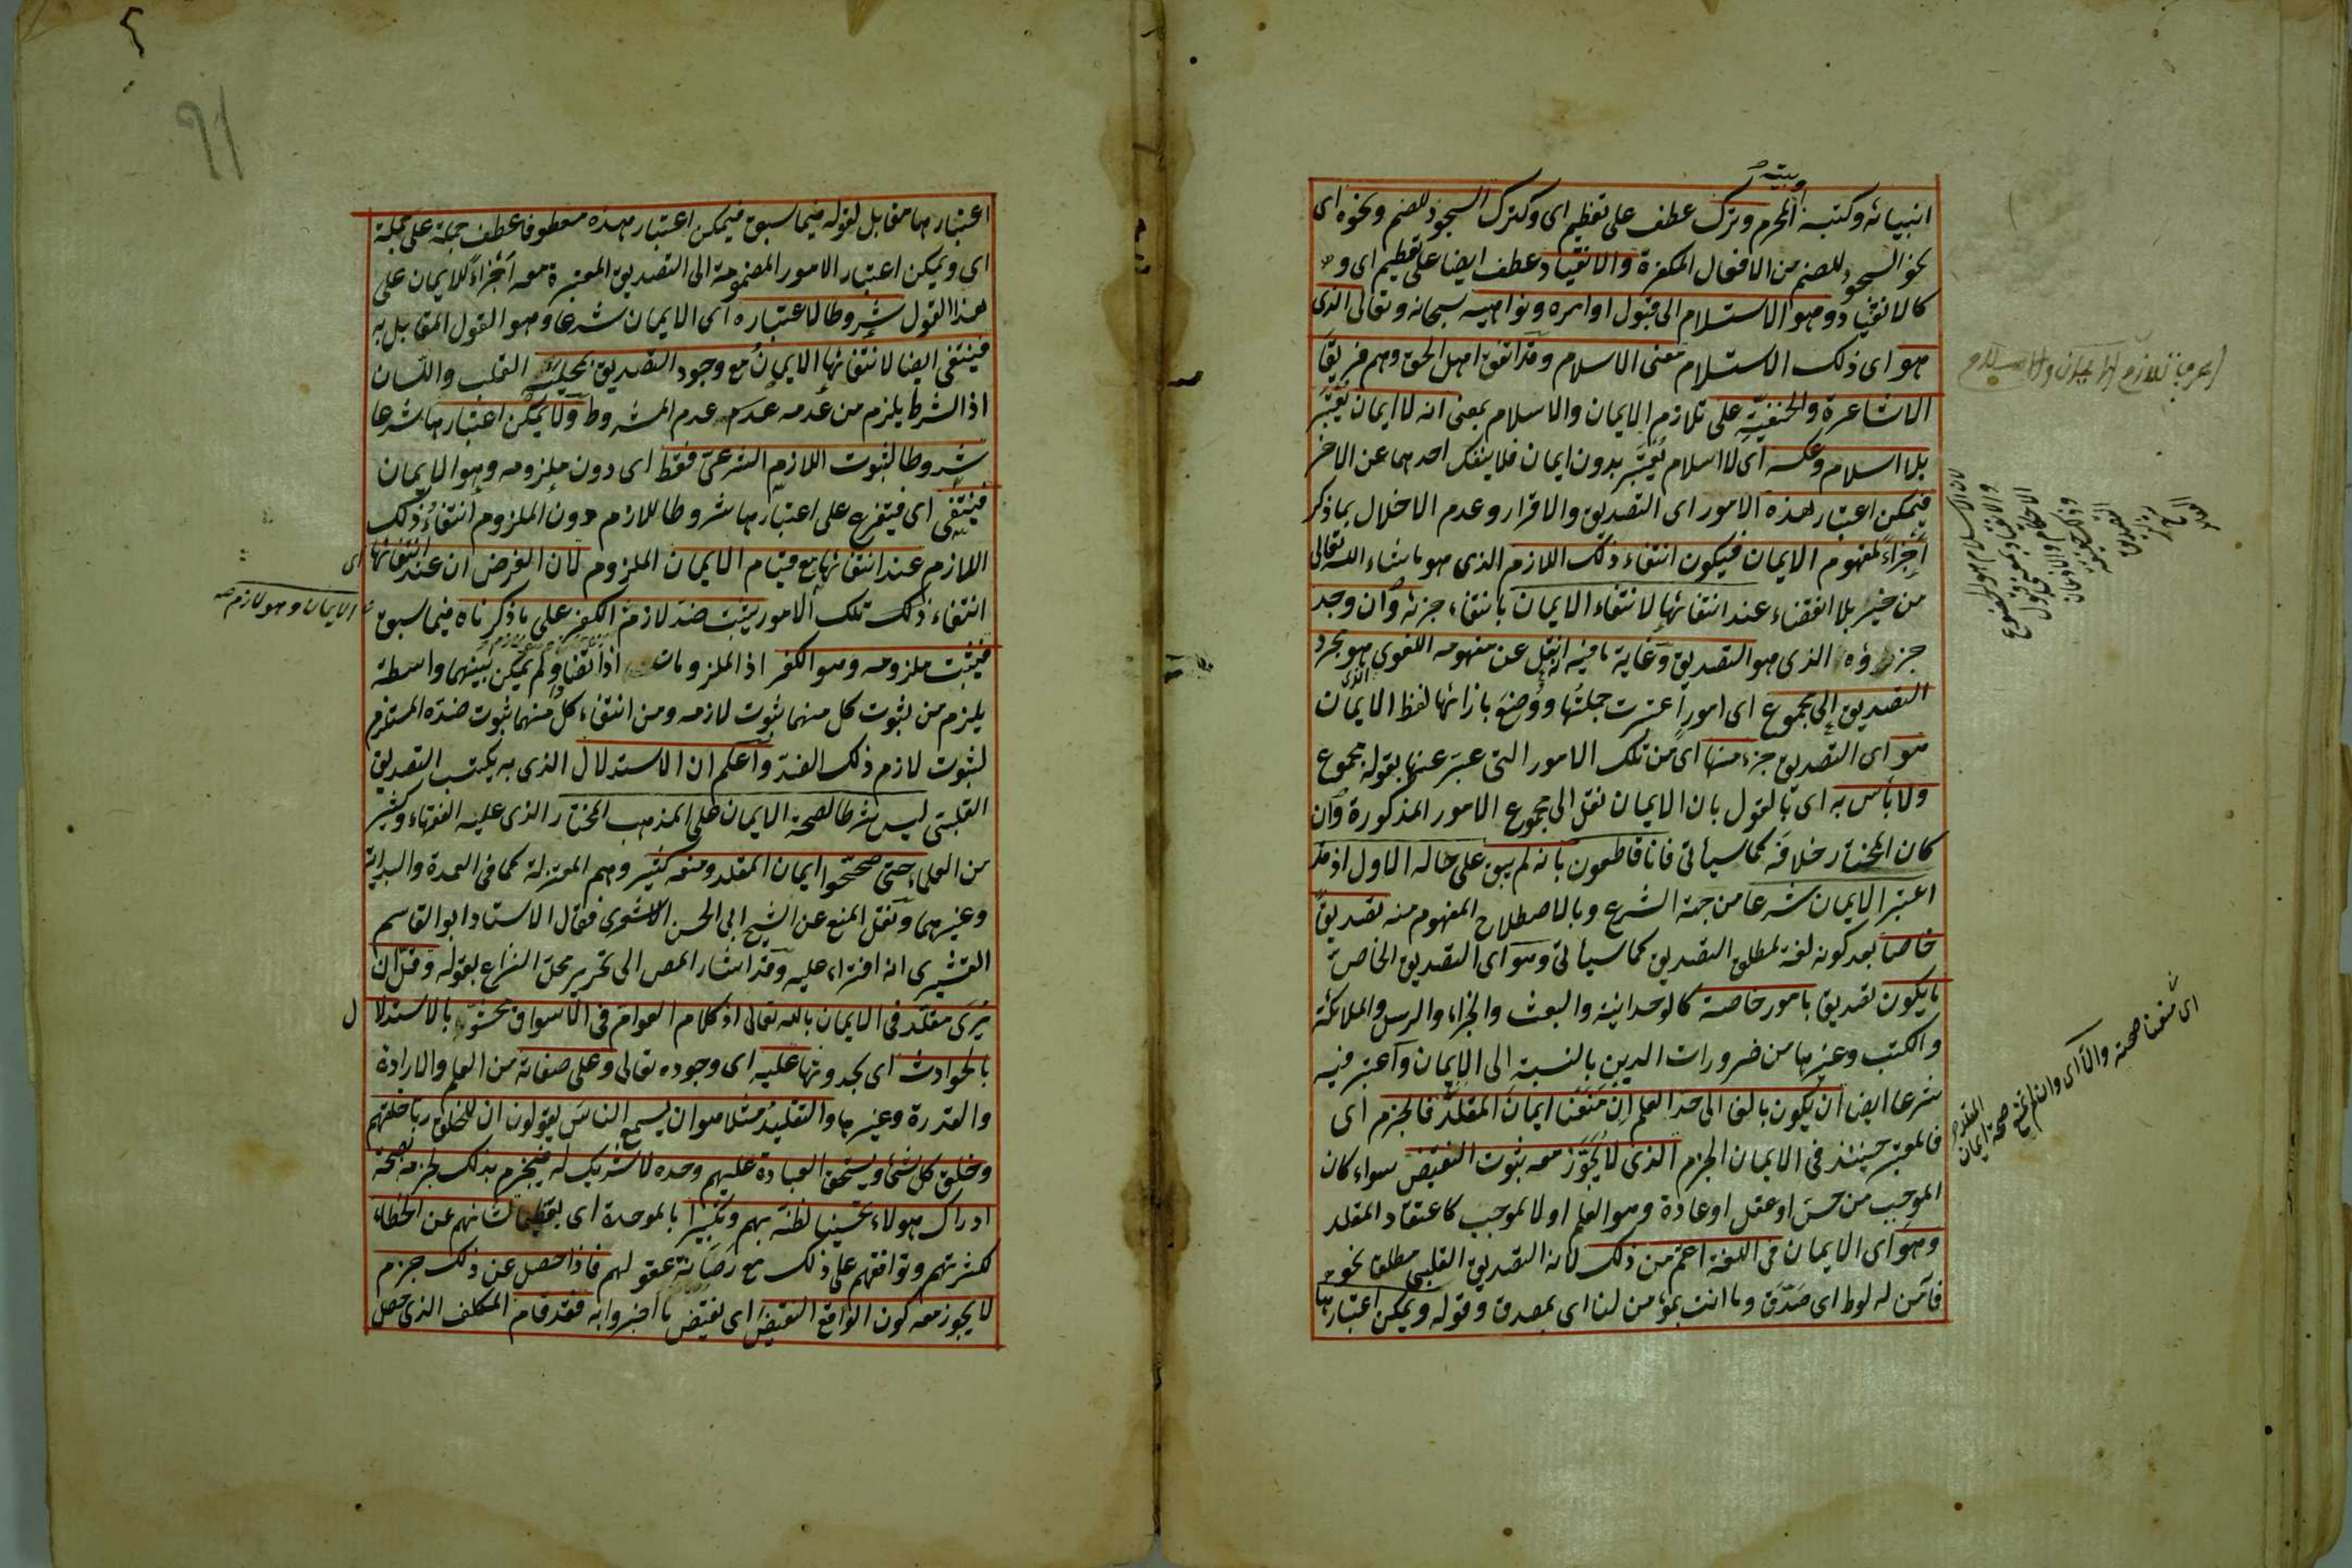 وبيته
انبيائه وكتبه المحرم وترك عطف على تعظيم اى وكترك السجود للصنم ونحوه اى
نحو السجود للصنم من الافعال المكفرة والانقياد عطف ايضا على تعظيم اى و
كالانقياد وهو الاستسلام الى قبول اوامره ونواهيه سبحانه وتعالى الذى
هو اى ذلك الاستسلام معنى الاسلام وقد اتفق اهل الحق وهم فريقا
الاشاعرة والحنفية على تلازم الايمان والاسلام بمعنى انه لا ايمان يعتبر
بلا اسلام وعكسه اى لا اسلام يعتبر بدون ايمان فلا ينفك احدهما عن الاخر
فيمكن اعتبار هذه الامور اى التصديق والاقرار وعدم الاخلال بما ذكر
أجزاءً لمفهوم الايمان فيكون انتفاء ذلك اللازم الذى هو ما شاء الله تعالى
من خير بلا انقضاء عند انتفائها لانتفاء الايمان بانتفاء جزئه وان وجد
جزؤه الذى هو التصديق وغاية ما فيه انه نقل عن مفهومه اللغوى الذى هو مجرد
التصديق الى مجموع اى امور اعتبرت جملتها ووضع بازائها لفظ الايمان
هو اى التصديق جزء منها اى من تلك الامور التى عبر عنها بقوله مجموع
ولا بأس به اى بالقول بان الايمان نقل الى مجموع الامور المذكورة وان
كان المختار خلافه كما سيأتى فانا قاطعون بانه لم يبق على حاله الاول اذ قد
اعتبر الايمان شرعا من جهة الشرع وبالاصطلاح المفهوم منه تصديقا
خاصا بعد كونه لغة لمطلق التصديق كما سيأتى وهو اى التصديق الخاص
ما يكون تصديقا بامور خاصة كالوحدانية والبعث والجزاء والرسل والملائكة
والكتب وغيرها من ضرورات الدين بالنسبة الى الايمان واعتبر فيه
شرعا ايضا ان يكون بالغا الى حد العلم ان منعنا ايمان المقلد فالجزم اى
فالمعتبر حينئذ فى الايمان الجزم الذى لا يجوز معه ثبوت النقيض سواء كان
الموجب من حس او عقل او عادة وهو العلم او لا لموجب كاعتقاد المقلد
وهو اى الايمان فى اللغة اعم من ذلك لانه التصديق القلبى مطلقا نحو
فآمن له لوط اى صدق وما انت بمؤمن لنا اى بمصدق وقوله ويمكن اعتبارها
اى منعنا صحته والا اى وان لم نمنع صحة ايمان
المقلد
٩١
اعتبارها مقابل لقوله فيما سبق فيمكن اعتبار هذه معطوفا عطف جملة على جملة
اى ويمكن اعتبار الامور المضمومة الى التصديق المعتبرة معه أجزاءً للايمان على
هذا القول شروطا لاعتباره اى الايمان شرعا وهو القول المقابل به
فينتفى ايضا لانتفائها الايمان مع وجود التصديق بمحليه القلب واللسان
اذ الشرط يلزم من عدمه عدم المشروط ولا يمكن اعتبارها شرعا
شروطا لثبوت اللازم الشرعى فقط اى دون ملزومه وهو الايمان
فينتفى اى فيتفرع على اعتبارها شروطا للازم دون الملزوم انتفاء ذلك
اللازم عند انتفائها مع قيام الايمان الملزوم لان الفرض ان عند انتفائها اى
انتفاء ذلك تلك الامور يثبت ضد لازم الكفر على ما ذكرناه فيما سبق
الايمان وهو لازم
فيثبت ملزومه وهو الكفر اذ الملزومات اذا تضا ولم يمكن بينهما واسطة
يلزم من ثبوت كل منهما ثبوت لازمه ومن انتفاء كل منهما ثبوت ضده المستلزم
لثبوت لازم ذلك الضد واعلم ان الاستدلال الذى به يكتسب التصديق
القلبى ليس شرطا لصحة الايمان على المذهب المختار الذى عليه الفقهاء وكثير
من العلماء حتى صححوا ايمان المقلد ومنعه كثير وهم المعتزلة كما فى العمدة والبداية
وغيرهما ونقل المنع عن الشيخ ابى الحسن الاشعرى فقال الاستاد ابو القاسم
القشيرى انه افتراء عليه وقد اشار المص الى تحرير محل النزاع بقوله وقل ان
يرى مقلد فى الايمان بالله تعالى اذ كلام العوام فى الاسواق محشو بالاستدلال
بالحوادث اى بحدوثها عليه اى وجوده تعالى وعلى صفاته من العلم والارادة
والقدرة وغيرها والتقليد مثلا هو ان يسمع الناس يقولون ان للخلق ربا خلقهم
وخلق كل شئ ويستحق العبادة عليهم وحده لا شريك له فيجزم بذلك لجزمه بصحة
ادراك هؤلاء تحسينا لظنه بهم وتكبيرا بالموحدة اى تعظيما لشانهم عن الخطاء
لكثرتهم وتوافقهم على ذلك مع رصانة عقولهم فاذا حصل عن ذلك جزم
لا يجوز معه كون الواقع النقيض اى نقيض ما اخبروا به فقد قام المكلف الذى حصل